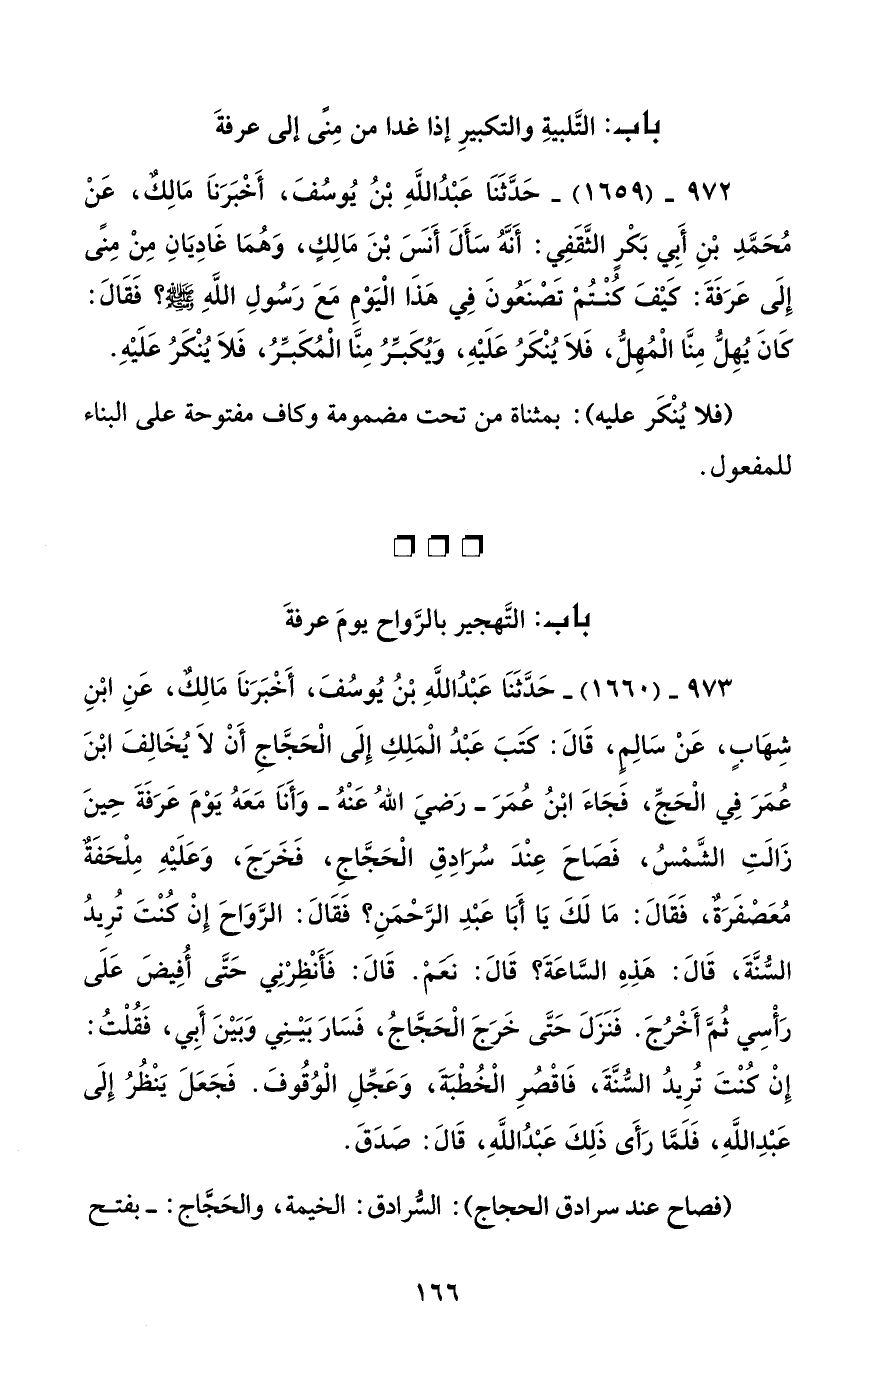 باب: التَّلبيةِ والتكبيرِ إذا غدا من مِنًى إلى عرفةَ
٩٧٢ ـ (١٦٥٩) ـ حَدَّثَنَا عَبْدُاللَّهِ بْنُ يُوسُفَ، أَخْبَرَنَا مَالِكٌ، عَنْ
مُحَمَّدِ بْنِ أَبِي بَكْرٍ الثَّقَفِي: أَنَّهُ سَأَلَ أَنَسَ بْنَ مَالِكٍ، وَهُمَا غَادِيَانِ مِنْ مِنًى
إِلَى عَرَفَةَ: كَيْفَ كُنْتُمْ تَصْنَعُونَ فِي هَذَا الْيَوْمِ مَعَ رَسُولِ اللَّهِ ﷺ؟ فَقَالَ:
كَانَ يُهِلُّ مِنَّا الْمُهِلُّ، فَلاَ يُنْكَرُ عَلَيْهِ، وَيُكَبِّرُ مِنَّا الْمُكَبِّرُ، فَلاَ يُنْكَرُ عَلَيْهِ.
(فلا يُنْكَر عليه): بمثناة من تحت مضمومة وكاف مفتوحة على البناء
للمفعول.
باب: التَّهجير بالرَّواح يومَ عرفةَ
٩٧٣ ـ (١٦٦٠) ـ حَدَّثَنَا عَبْدُاللَّهِ بْنُ يُوسُفَ، أَخْبَرَنَا مَالِكٌ، عَنِ ابْنِ
شِهَابٍ، عَنْ سَالِمٍ، قَالَ: كَتَبَ عَبْدُ الْمَلِكِ إِلَى الْحَجَّاجِ أَنْ لاَ يُخَالِفَ ابْنَ
عُمَرَ فِي الْحَجِّ، فَجَاءَ ابْنُ عُمَرَ ـ رَضِيَ اللهُ عَنْهُ ـ وَأَنَا مَعَهُ يَوْمَ عَرَفَةَ حِينَ
زَالَتِ الشَّمْسُ، فَصَاحَ عِنْدَ سُرَادِقِ الْحَجَّاجِ، فَخَرَجَ، وَعَلَيْهِ مِلْحَفَةٌ
مُعَصْفَرَةٌ، فَقَالَ: مَا لَكَ يَا أَبَا عَبْدِ الرَّحْمَنِ؟ فَقَالَ: الرَّوَاحَ إِنْ كُنْتَ تُرِيدُ
السُّنَّةَ، قَالَ: هَذِهِ السَّاعَةَ؟ قَالَ: نَعَمْ. قَالَ: فَأَنْظِرْنِي حَتَّى أُفِيضَ عَلَى
رَأْسِي ثُمَّ أَخْرُجَ. فَنَزَلَ حَتَّى خَرَجَ الْحَجَّاجُ، فَسَارَ بَيْنِي وَبَيْنَ أَبِي، فَقُلْتُ:
إِنْ كُنْتَ تُرِيدُ السُّنَّةَ، فَاقْصُرِ الْخُطْبَةَ، وَعَجِّلِ الْوُقُوفَ. فَجَعَلَ يَنْظُرُ إِلَى
عَبْدِاللَّهِ، فَلَمَّا رَأَى ذَلِكَ عَبْدُاللَّهِ، قَالَ: صَدَقَ.
(فصاح عند سرادق الحجاج): السُّرادق: الخيمة، والحَجَّاج: ـ بفتح
١٦٦